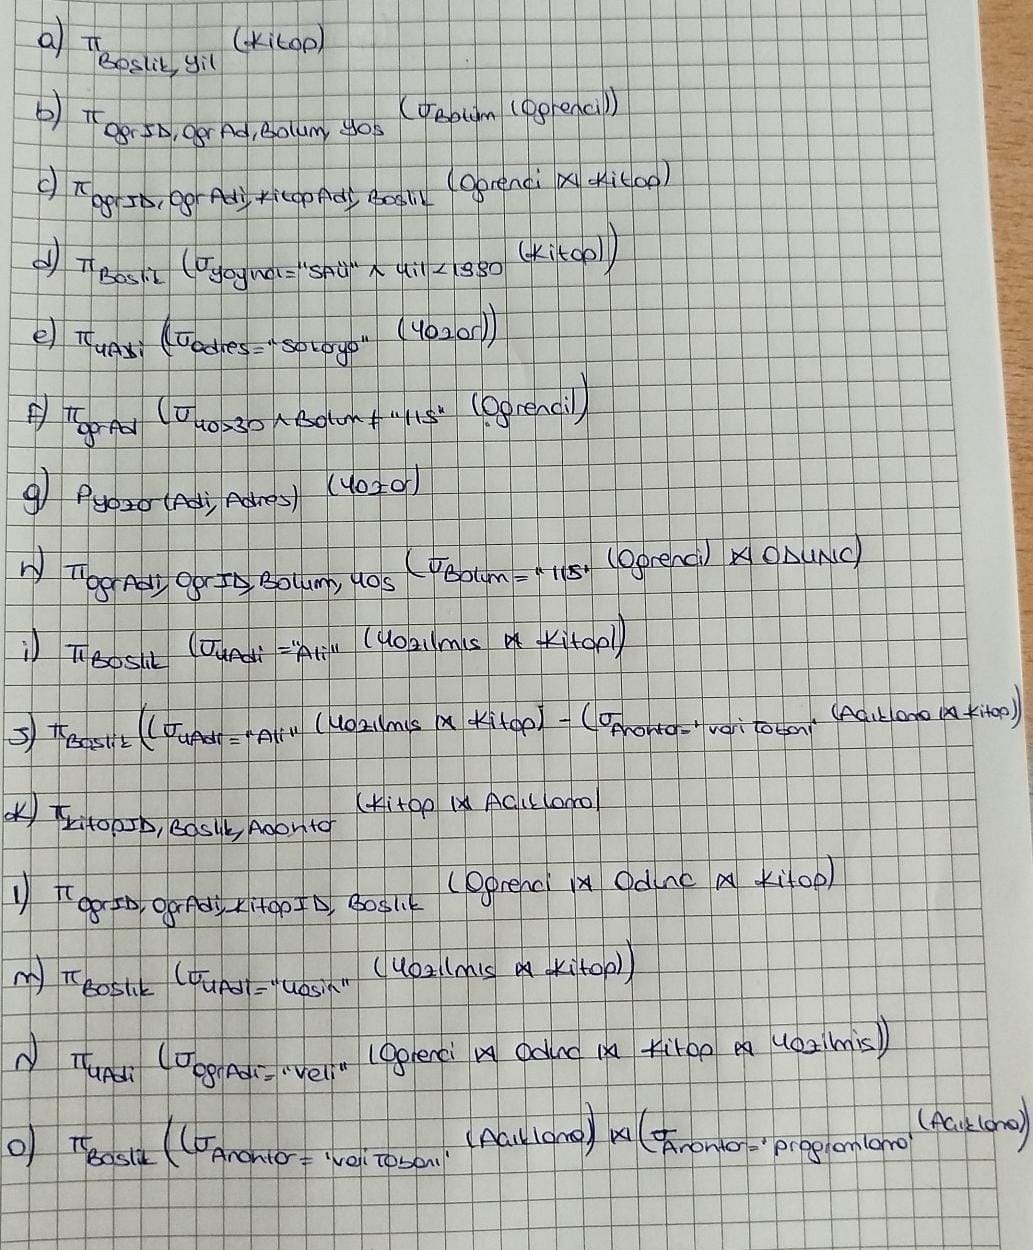 a) π Baslik, yil (kitap)
b) π ogrID, ogrAd, Bolum, yas (σ Bolum (Ogrenci))
c) π ogrID, ogrAdi, kitapAdi, Baslik (Ogrenci ⋈ kitap)
d) π Baslik (σ yayınai="SAÜ" ∧ yil<1990 (kitap))
e) π yAdi (σ adres="Sakarya" (yazar))
f) π ogrAd (σ yas>30 ∧ Bolum ≠ "115" (Ogrenci))
g) ρ yazar(Adi, Adres) (yazar)
h) π ogrAdi, ogrID, Bolum, yas (σ Bolum="115" (Ogrenci) ⋈ ODUNC)
i) π Baslik (σ yAdi="Ali" (yazılmıs ⋈ kitap))
j) π Baslik ((σ yAdi="Ali" (yazılmıs ⋈ kitap) - (σ Anahtar='veri tabanı' (Acıklama ⋈ kitap))
k) π kitapID, Baslık, Aaahtar (kitap ⋈ Acıklama)
l) π ogrID, ogrAdi, kitapID, Baslık (Ogrenci ⋈ Odunc ⋈ kitap)
m) π Baslık (σ yAdi="yasin" (yazılmıs ⋈ kitap))
n) π yAdi (σ ogrAdi="veli" (Ogrenci ⋈ Odunc ⋈ kitap ⋈ yazılmıs))
o) π Baslik ((σ Anahtar='veri Tabanı' (Acıklama)) ⋈ (σ Anahtar='programlama' (Acıklama))